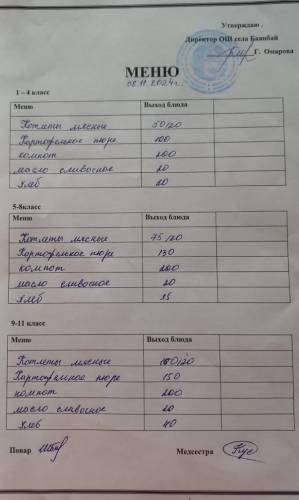 Утверждаю .
Директор ОШ села Баянбай
Г. Омарова
МЕНЮ
08.11.2024г.
1 – 4 класс
Меню Выход блюда
Котлеты мясные 50/20
Картофельное пюре 100
компот 200
масло сливочное 20
хлеб 20
5-8класс
Меню Выход блюда
Котлеты мясные 75/20
Картофельное пюре 130
компот 200
масло сливочное 20
хлеб 35
9-11 класс
Меню Выход блюда
Котлеты мясные 100/20
Картофельное пюре 150
компот 200
масло сливочное 20
хлеб 40
Повар Медсестра